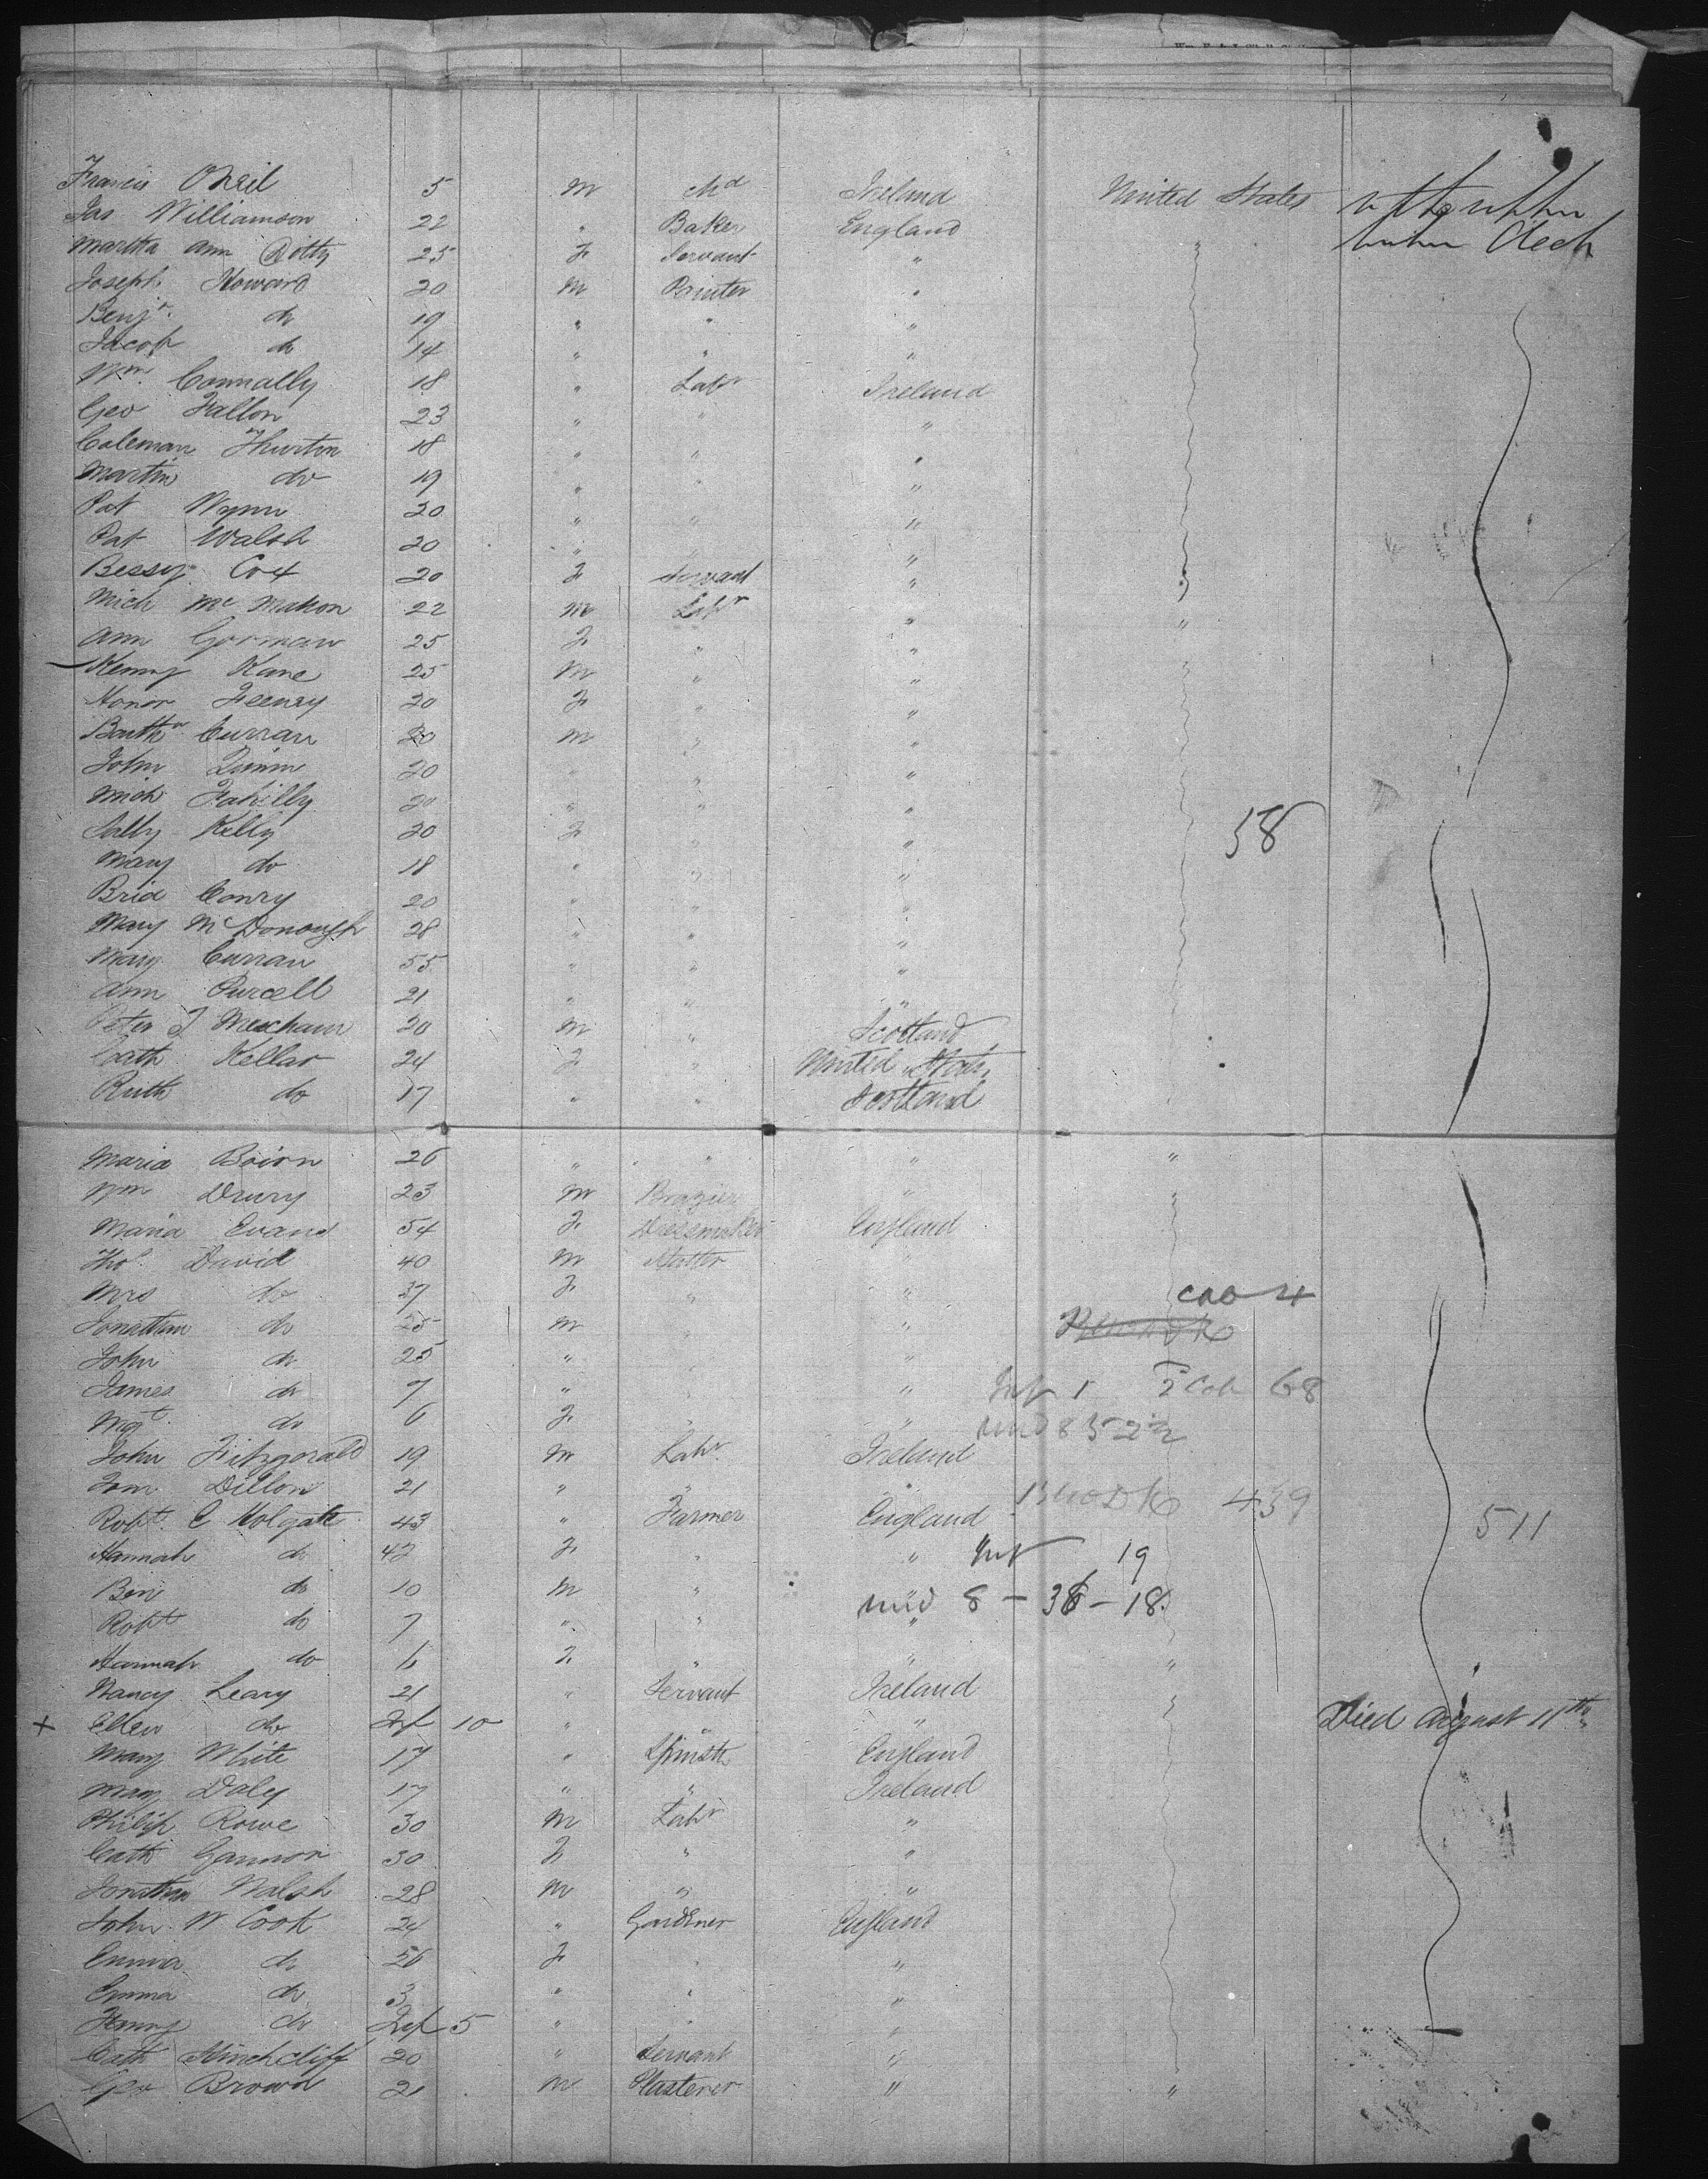 Francis ONeil 5 M Chd Ireland United States
Jas Williamson 22 " Baker England
Martha Ann 25 F Servant "
Joseph Howard 20 M "
Benjn. do 19 " " "
Jacob do 14 " " "
Wm. Connally 18 " Labr Ireland
Geo Fallon 23 " " "
Coleman Thurton 18 " " "
Martin do 19 " " "
Pat Wynn 20 " " "
Pat Walsh 20 " " "
Bessy Cox 20 F Servant "
Mich McMahon 22 M Labr " "
Ann Gorman 25 F " "
Kenny Kane 25 M " "
Honor Feeney 20 F " "
Barthw Curran 20 M " "
John Quinn 20 " " "
Mich Fahilly 20 " " "
Sally Kelly 20 F " " 58
Mary do 18 " " "
Brid Conry 20 " " "
Mary McDonough 28 " " "
Mary Curran 55 " " "
Ann Purcell 21 " " "
Peter J Meecham 20 M " Scotland
Cath Kellar 24 F " United States
Ruth do 17 " " Scotland
Maria 26 " " " "
Wm Drury 23 M Brazier "
Maria Evans 54 F Dressmaker England
Thos. David 40 M
Mrs do 37 F " "
Jonathan do 25 M " "
John do 25 " "
James do 7 " "
Mgt. do 6 F " "
John Fitzgerald 19 M Labr. Ireland
Tom Dillon 21 " " "
Robt. C Holgate 43 " Farmer England 439 511
Hannah do 42 F " " Inf 19
Ben do 10 M " " 8 - 36 - 18
Robt do 7 " " "
Hannah do 6 F " " "
Nancy Leary 21 " Servant Ireland
x Ellen do Inf 10 " " " Died August 11th
Mary White 17 " Spinstr England
Mary Daly 17 " " Ireland
Philip Rowe 30 M Labr "
Cath Gannon 30 F " "
Jonathan Walsh 28 M " "
John W Cook 24 " Gardener England
Emma do 26 F " "
Emma do 3 " " "
Fanny do Inf 5 " " "
Cath Hinchcliff 20 " Servant "
Geo Brown 21 M Plasterer " "